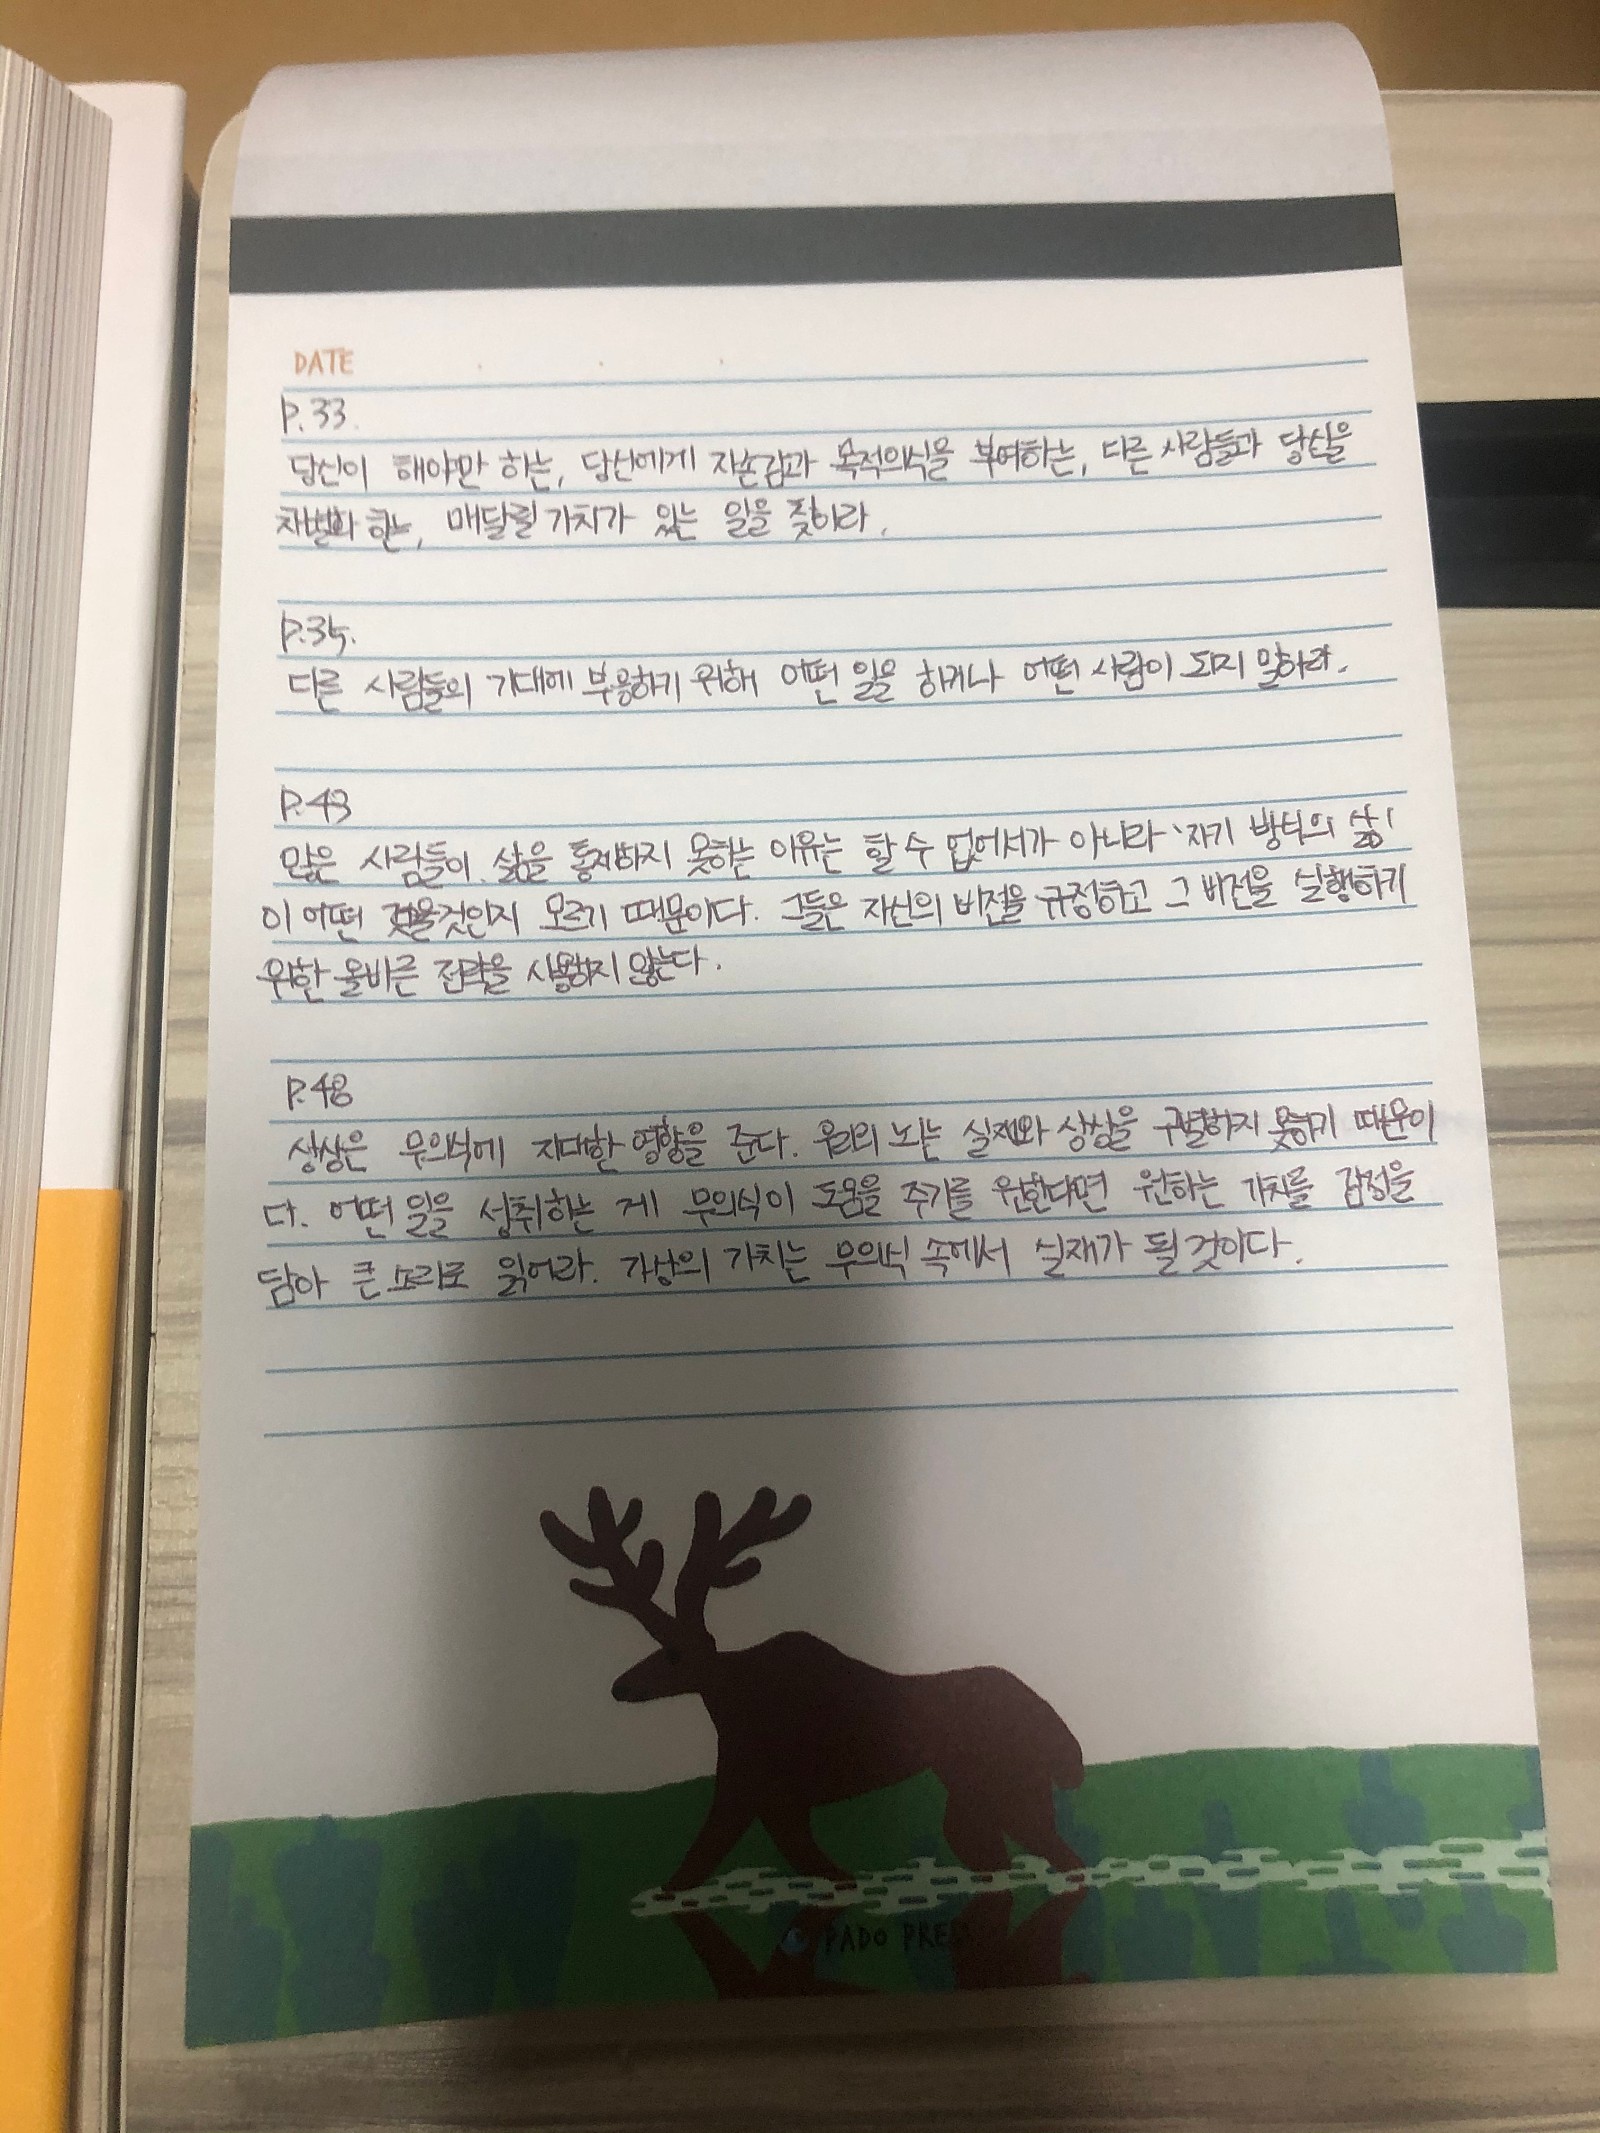 DATE
P.33.
당신이 해야만 하는, 당신에게 자존감과 목적의식을 부여하는, 다른 사람들과 당신을
차별화 하는, 매달릴 가치가 있는 일을 찾아라.
P.35.
다른 사람들의 기대에 부응하기 위해 어떤 일을 하거나 어떤 사람이 되지 말아라.
P.43
많은 사람들이 삶을 통제하지 못하는 이유는 할 수 없어서가 아니라 '자기 방식의 삶'
이 어떤 것인지 모르기 때문이다. 그들은 자신의 비전을 규정하고 그 비전을 실행하기
위한 올바른 전략을 사용하지 않는다.
P.48
상상은 무의식에 지대한 영향을 준다. 우리의 뇌는 실제와 상상을 구별하지 못하기 때문이
다. 어떤 일을 성취하는 게 무의식이 도움을 주기를 원한다면 원하는 가치를 감정을
담아 큰 소리로 읽어라. 가상의 가치는 무의식 속에서 실재가 될 것이다.
PADO PRESS